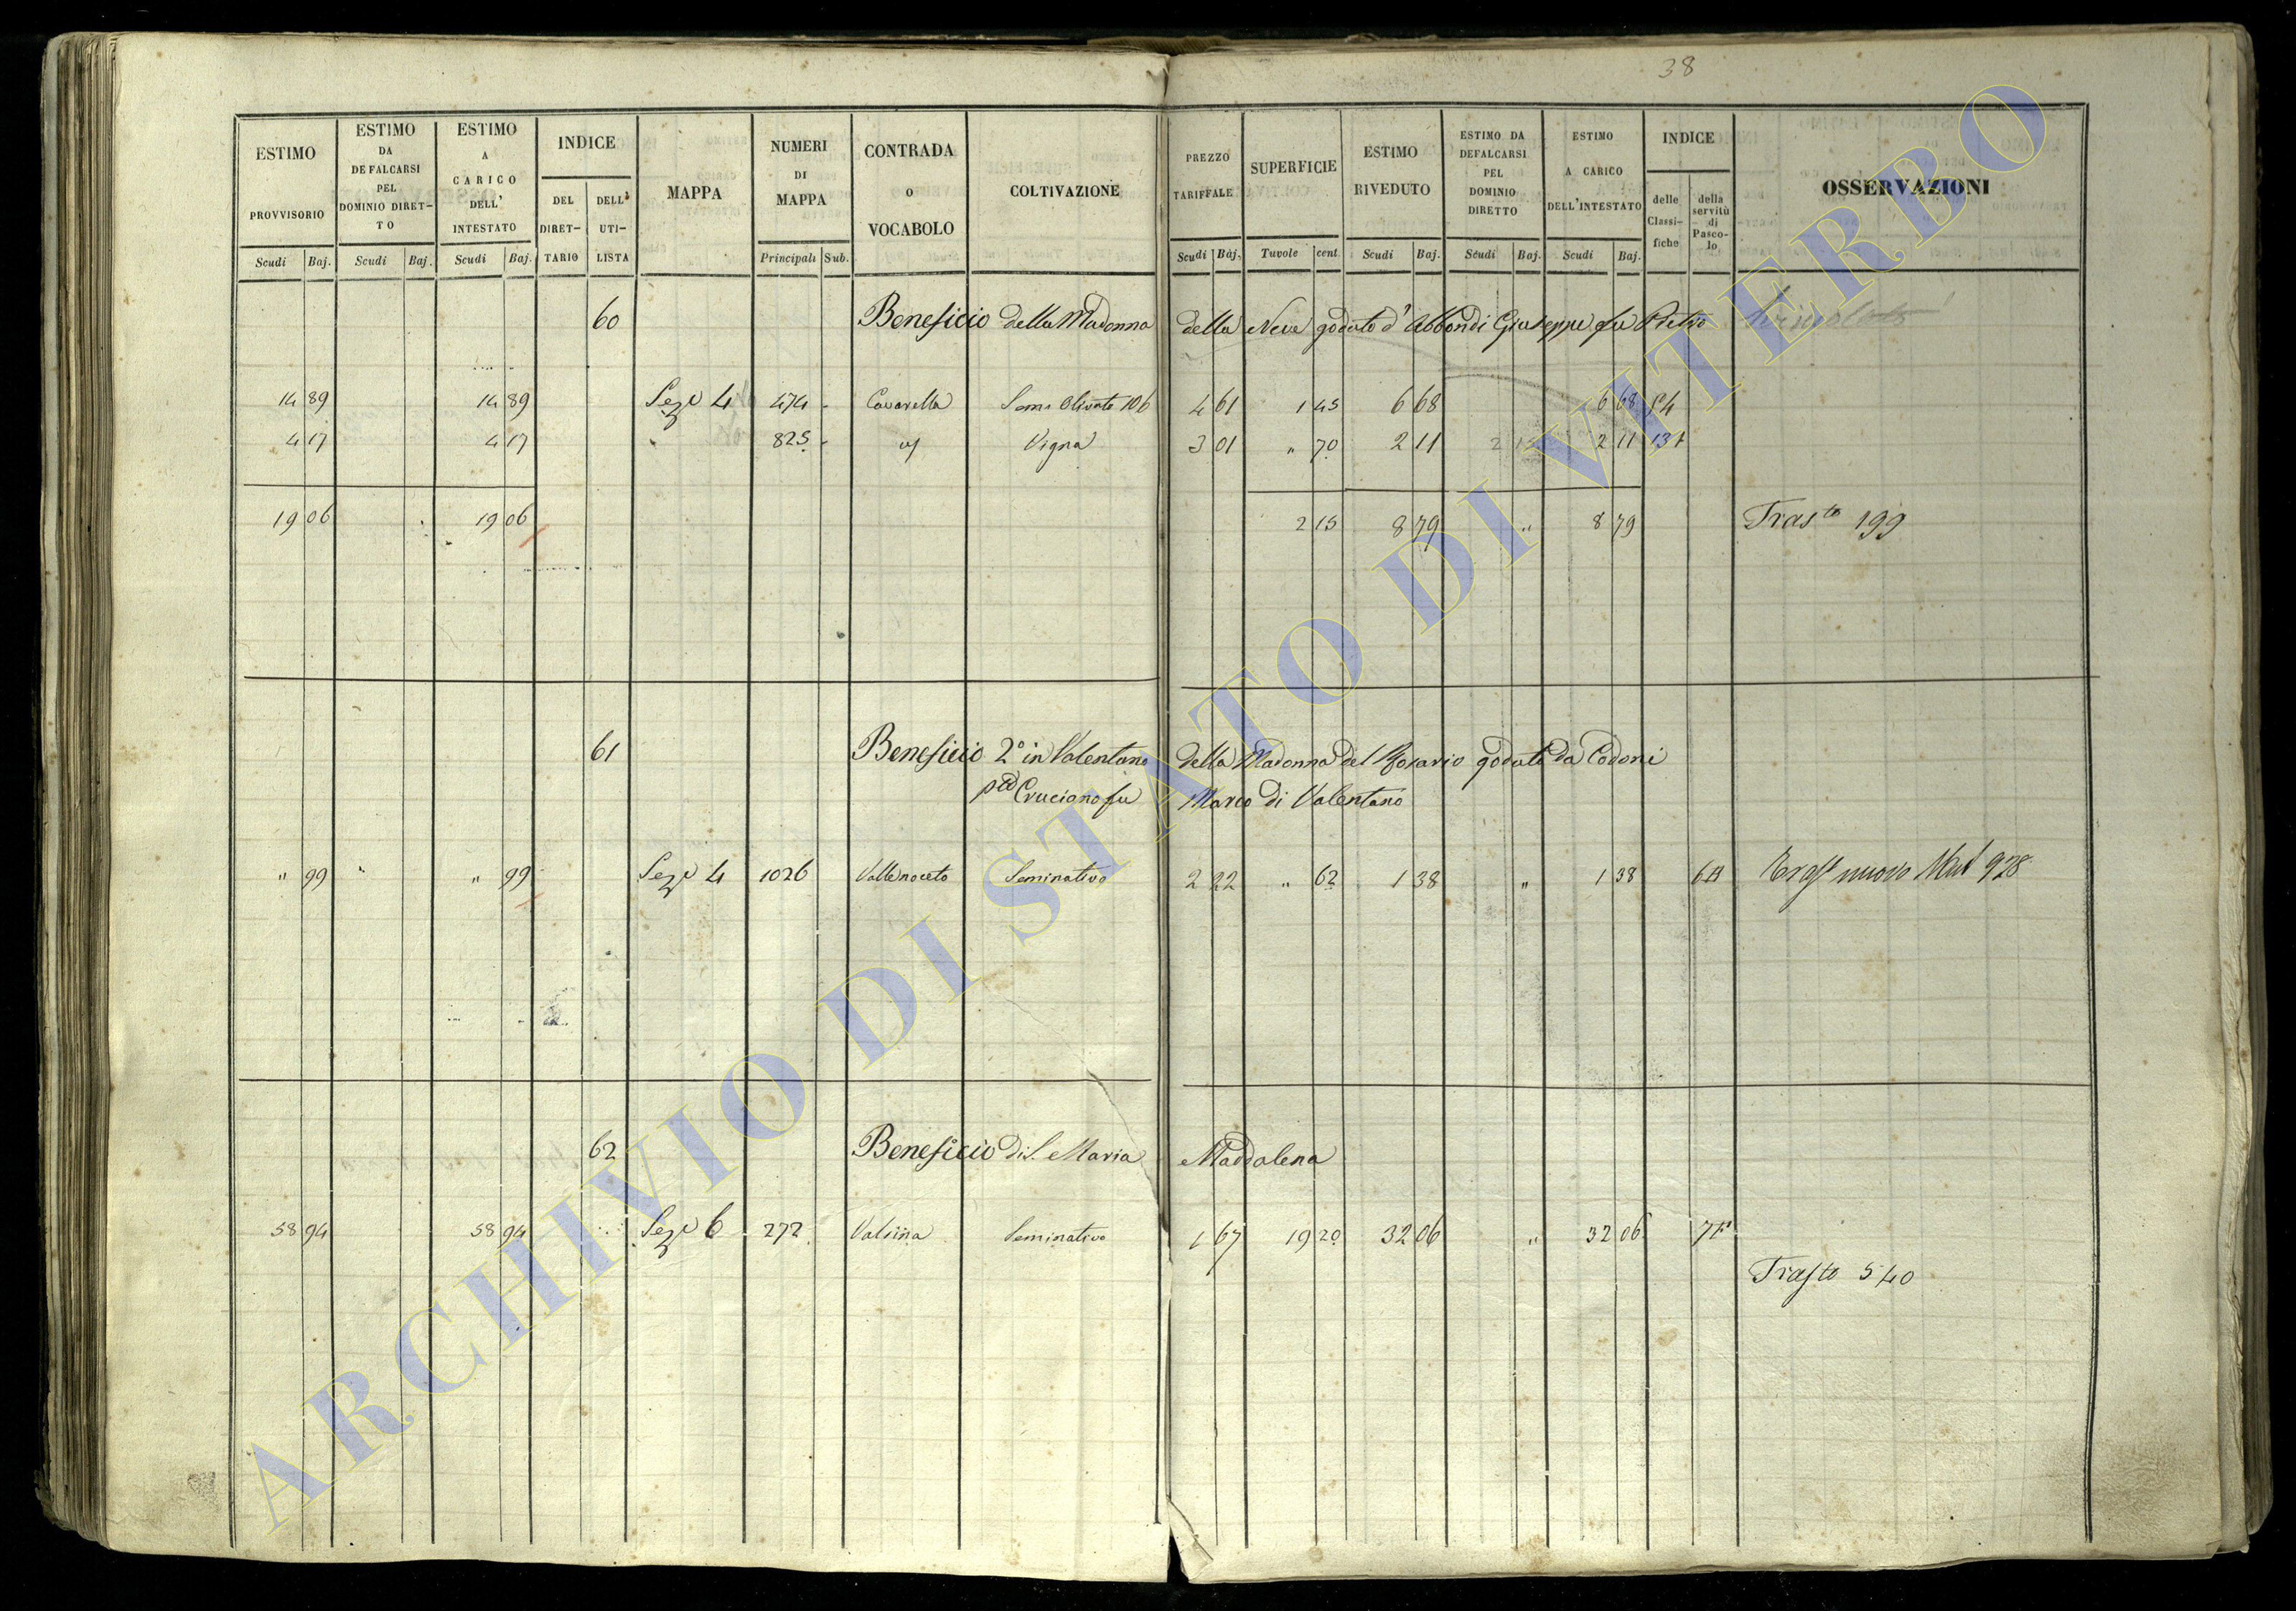 38
ESTIMO PROVVISORIO Scudi Baj.
ESTIMO DA DEFALCARSI PEL DOMINIO DIRET-TO Scudi Baj.
ESTIMO A CARICO DELL' INTESTATO Scudi Baj.
INDICE DEL DIRET-TARIO DELL' UTI-LISTA
MAPPA
NUMERI DI MAPPA Principali Sub.
CONTRADA o VOCABOLO
COLTIVAZIONE
PREZZO TARIFFALE Scudi Baj.
SUPERFICIE Tavole cent
ESTIMO RIVEDUTO Scudi Baj.
ESTIMO DA DEFALCARSI PEL DOMINIO DIRETTO Scudi Baj.
ESTIMO A CARICO DELL'INTESTATO Scudi Baj.
INDICE delle Classi-fiche della servitù di Pasco-lo
OSSERVAZIONI
60 Beneficio della Madonna della Neve goduto d'Abbondi Giuseppe fu Pietro
14 89 14 89 Seze 4 474 - Cavarella Semo Olivato 106 4 61 1 45 6 68 6 68 54
4 17 4 17 " 825 - Vigna 3 01 " 70 2 11 2 11 131
19 06 19 06 2 15 8 79 " 8 79 Trasto 199
61 Beneficio 2° in Valentano della Madonna del Rosario goduto da Codoni
Cruciano fu Marco di Valentano
" 99 " " 99 Seze 4 1026 Valle noceto Seminativo 2 22 " 62 1 38 " 1 38 nuovo 928
62 Beneficio di S. Maria Maddalena
58 94 58 94 Seze 6 272 Seminativo 1 67 19 20 32 06 " 32 06
Trasto 540
ARCHIVIO DI STATO DI VITERBO